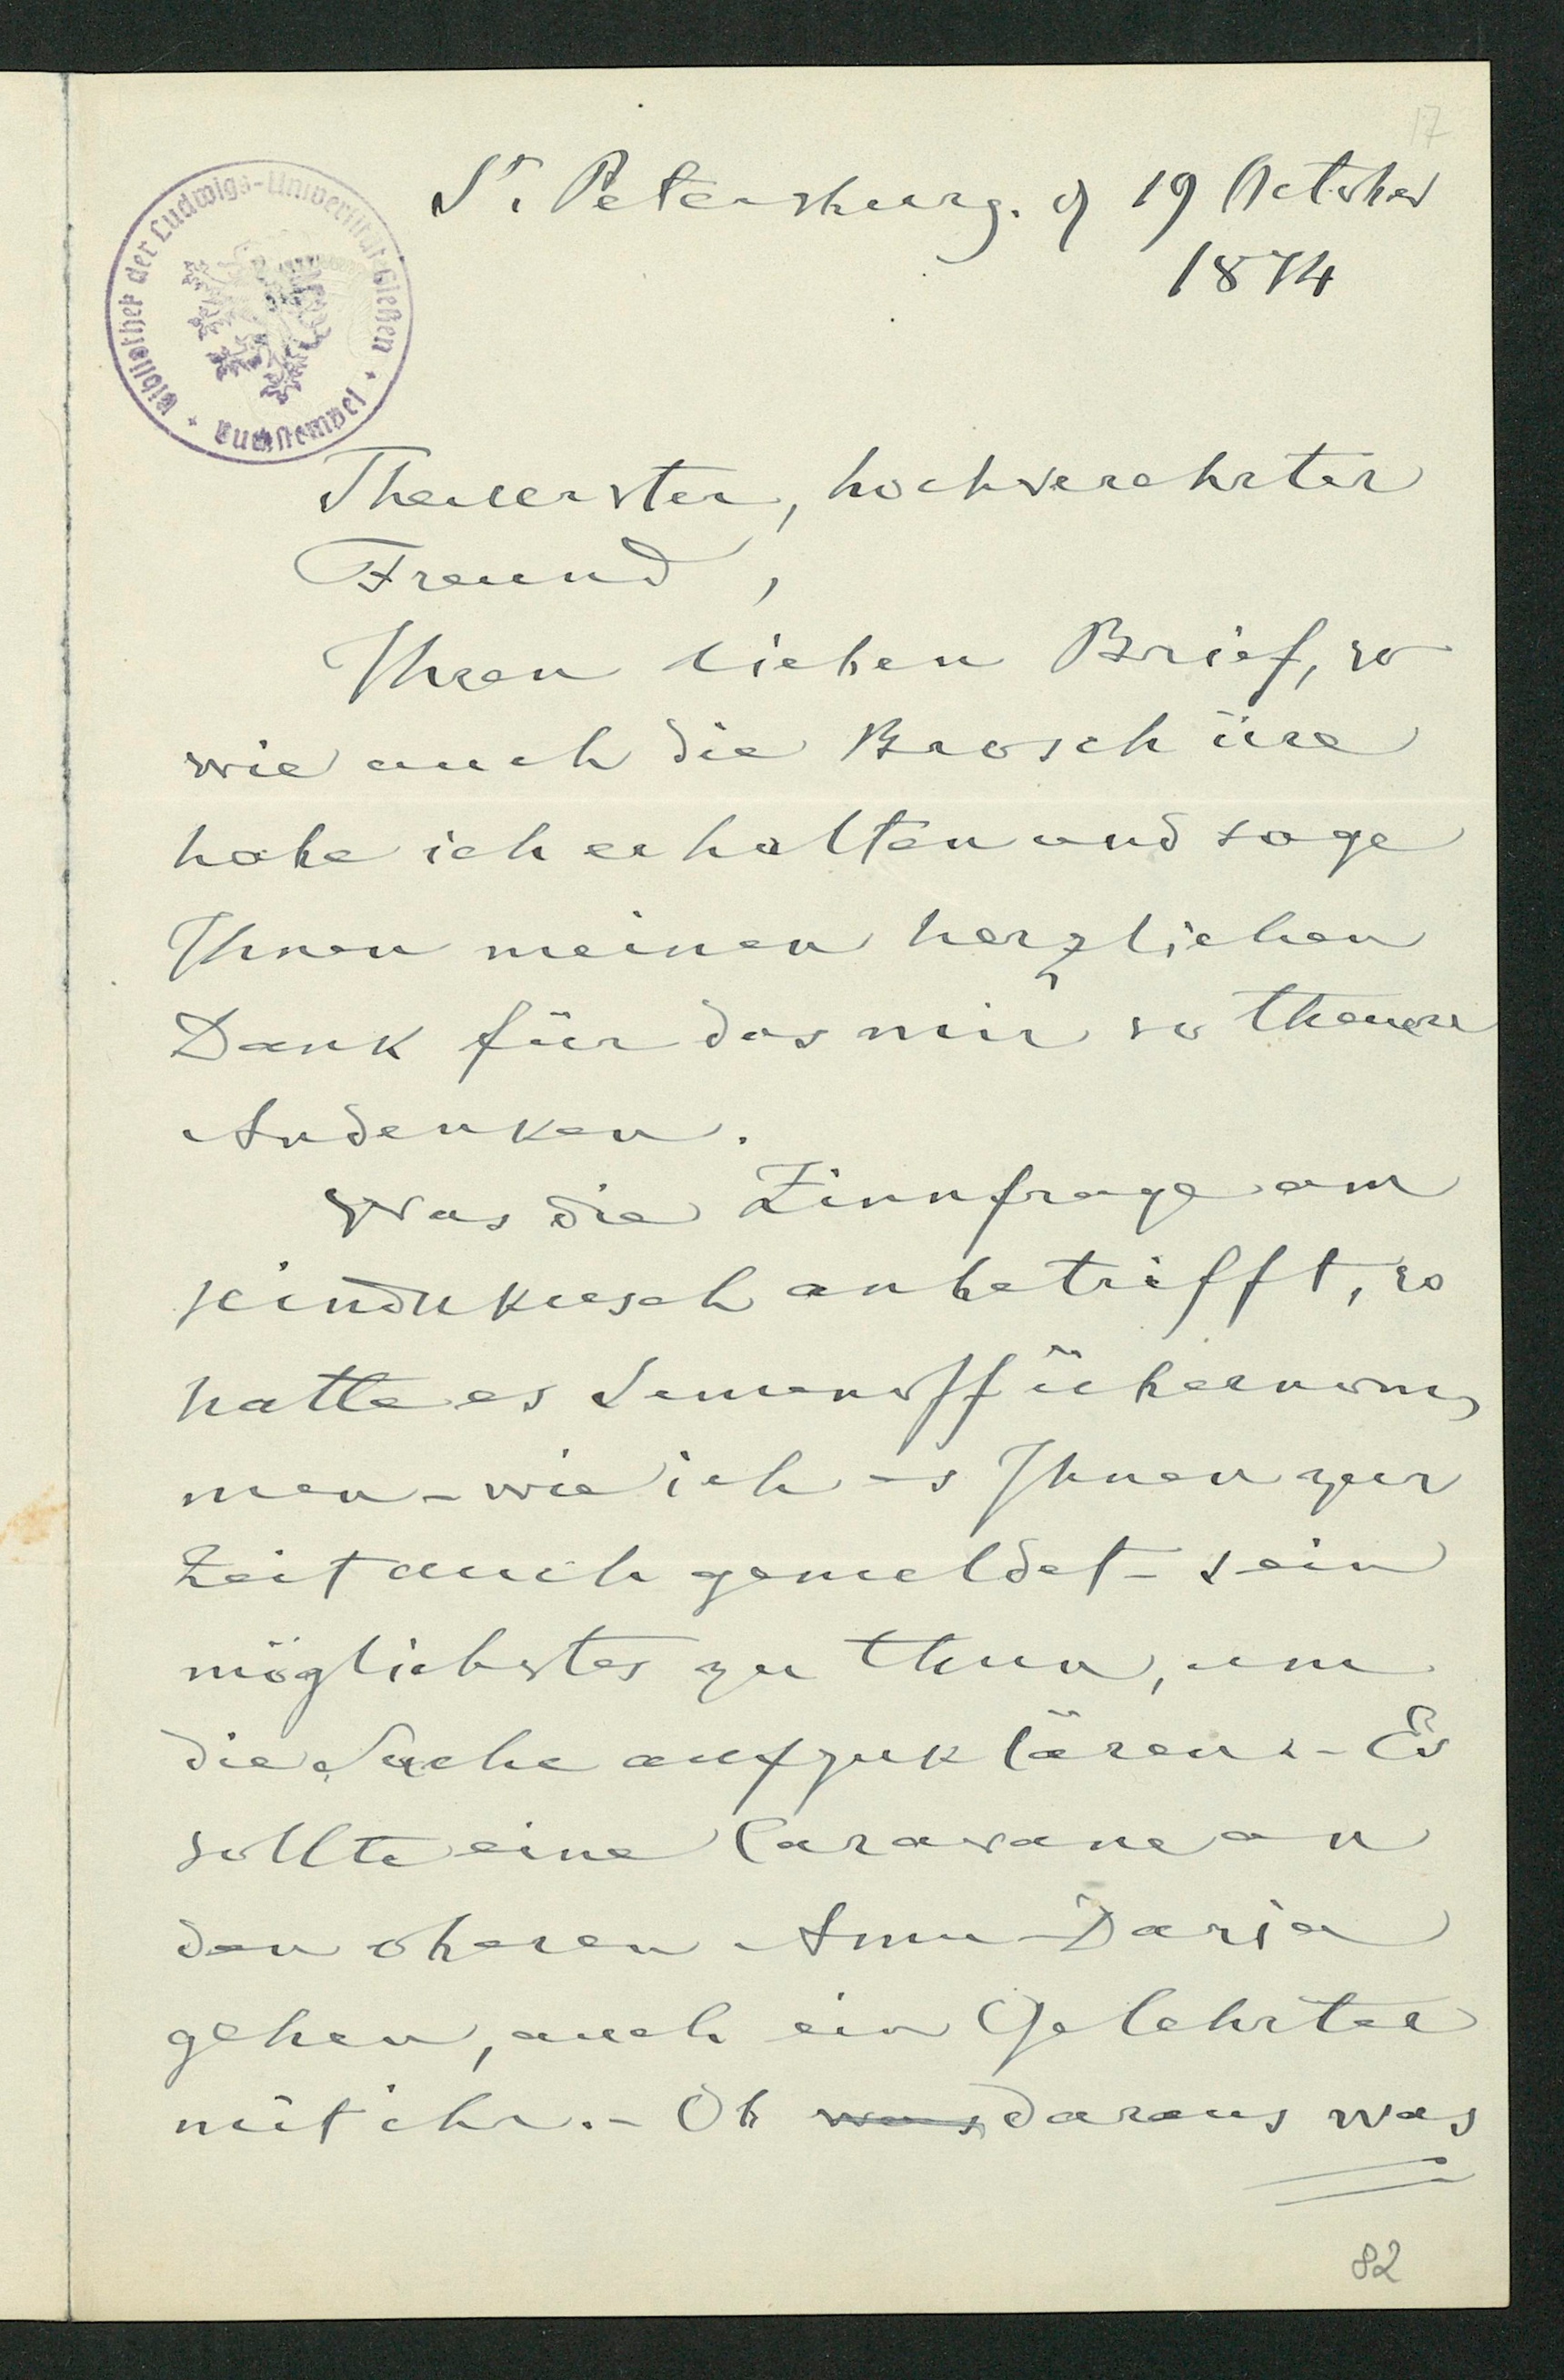 17
St. Petersburg. d 19 October
1874
Bibliothek der Ludwigs-Universität Gießen
Buchstempel
Theuerster, hochverehrter
Freund,
Ihren lieben Brief, so
wie auch die Broschüre
habe ich erhalten und sage
Ihnen meinen herzlichen
Dank für das mir so theuere
Andenken.
Was die Zinnfrage am
Hindukusch anbetrifft, so
hatte es Semenoff übernom
men - wie ich es Ihnen zur
Zeit auch gemeldet - sein
möglichstes zu thun, um
die Sache aufzuklären. - Es
sollte eine Caravane an
den oberen Amu-Daria
gehen, auch ein Gelehrter
mit ihr. - Ob was daraus was
82